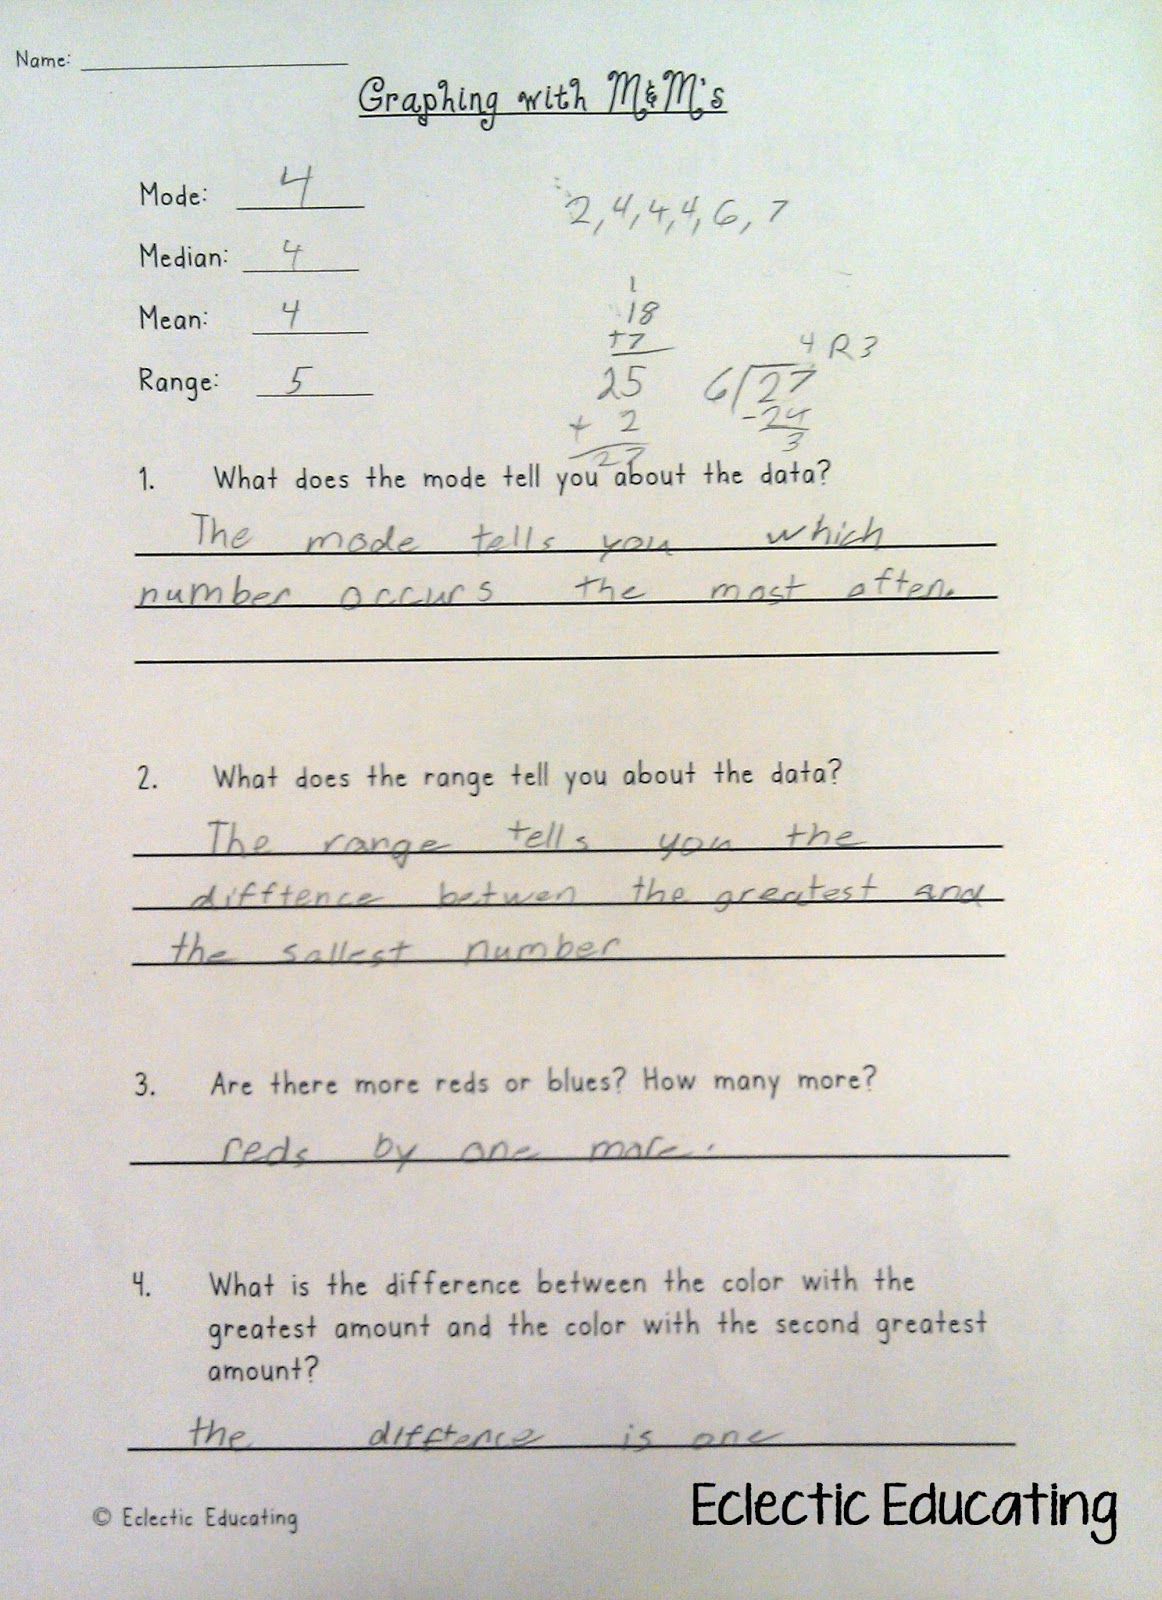 Name:
Graphing with M&M's
Mode: 4
2, 4, 4, 4, 6, 7
Median: 4
Mean: 4
Range: 5
1
18
+7
25
+ 2
27
4 R3
6)27
-24
3
1. What does the mode tell you about the data?
The mode tells you which
number occurs the most often.
2. What does the range tell you about the data?
The range tells you the
difftence betwen the greatest and
the sallest number
3. Are there more reds or blues? How many more?
reds by one more.
4. What is the difference between the color with the
greatest amount and the color with the second greatest
amount?
the difftence is one
© Eclectic Educating
Eclectic Educating